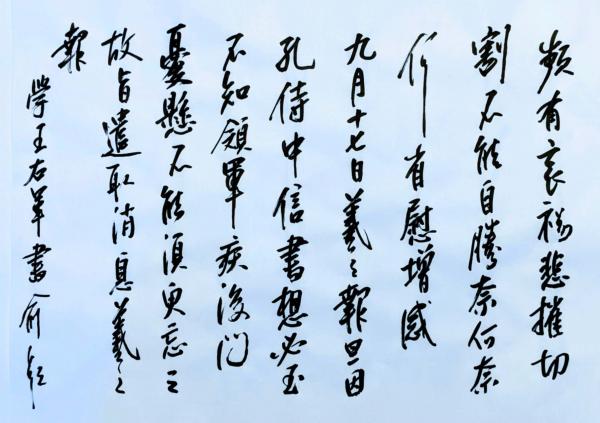 頻有哀禍悲摧切
割不能自勝奈何奈
何有慰增感
九月十七日羲之報且因
孔侍中信書想必至
不知領軍疾後問
憂懸不能須臾忘之
故旨遣取消息羲之
報
學王右軍書俞